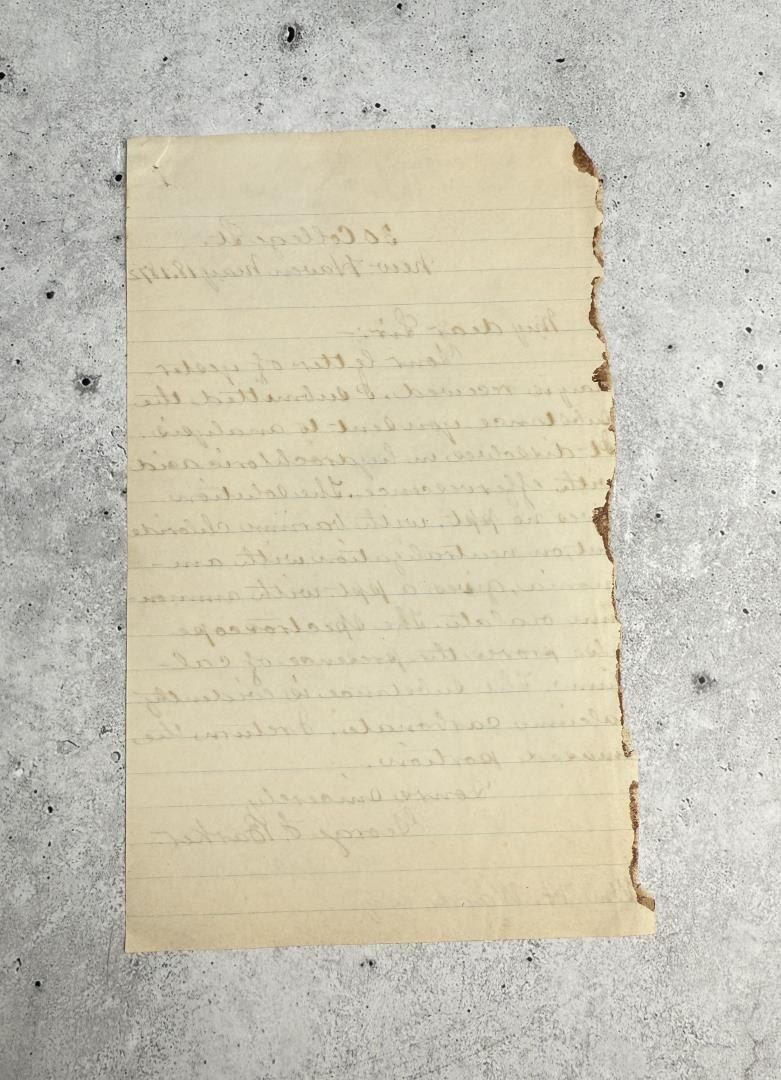 30 College St.
New Haven May 18. 1872
My dear Sir:—
Your letter of yester
ay is received. I submitted the
ubstance you sent to analysis.
It dissolves in hydrochloric acid
with effervescence. The solution
ves no ppt. with barium chloride
ut on neutralization with am-
monia, gives a ppt with ammon-
ium oxalate. The spectroscope
lso proves the presence of cal-
cium. The substance is evidently
alcium carbonate. I return the
nused portion.
Yours sincerely,
George F. Barker